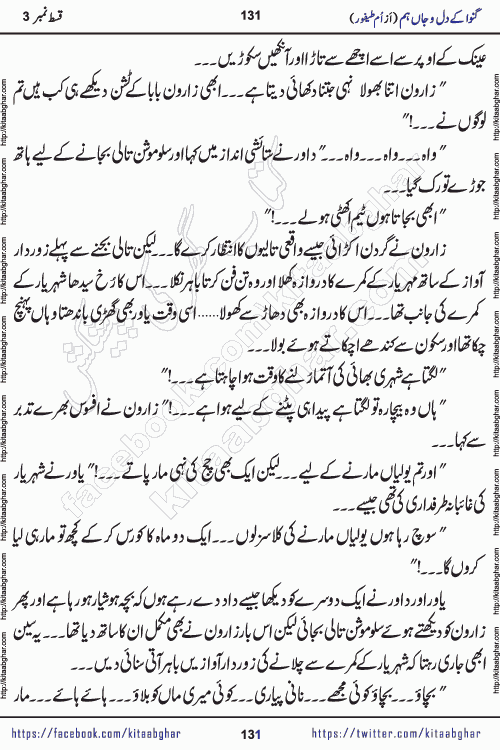 گنوا کے دل و جاں ہم (از اُم طیفور)
131
قسط نمبر 3
عینک کے اوپر سے اسے اچھے سے تاڑا اور آنکھیں سکوڑیں۔۔۔
" زارون اتنا بھولا نہی جتنا دکھائی دیتا ہے۔۔۔ابھی زارون بابا کے ٹشن دیکھے ہی کب ہیں تم
لوگوں نے۔۔۔!"
" واہ۔۔۔واہ۔۔۔واہ۔۔۔" داور نے ستائشی انداز میں کہا اور سلوموشن تالی بجانے کے لیے ہاتھ
جوڑے تو رک گیا۔۔۔
" ابھی بجاتا ہوں ٹیم اکھٹی ہولے۔۔۔!"
زارون نے گردن اکڑائی جیسے واقعی تالیوں کا انتظار کرے گا۔۔۔لیکن تالی بجنے سے پہلے زوردار
آواز کے ساتھ مہریار کے کمرے کا دروازہ کھلا اور وہ تن فن کرتا باہر نکلا۔۔۔اس کا رخ سیدھا شہریار کے
کمرے کی جانب تھا۔۔۔اس کا دروازہ بھی دھاڑ سے کھولا......اسی وقت یاور بھی گھڑی باندھتا وہاں پہنچ
چکا تھا اور سکون سے کندھے اچکاتے ہوئے بولا۔۔۔
" لگتا ہے شہری بھائی کی آتما رُلنے کا وقت ہوا چاہتا ہے۔۔۔!"
" ہاں وہ بیچارہ تو لگتا ہے پیدا ہی پٹنے کے لیے ہوا ہے۔۔۔!" زارون نے افسوس بھرے تدبر
سے کہا۔۔۔
" اور تم بولیاں مارنے کے لیے۔۔۔لیکن ایک بھی جچ کی نہی مار پاتے۔۔۔!" یاور نے شہریار
کی غائبانہ طرفداری کی تھی جیسے۔۔۔
" سوچ رہا ہوں بولیاں مارنے کی کلاسز لوں۔۔۔ایک دو ماہ کا کورس کر کے کچھ تو مار ہی لیا
کروں گا۔۔۔!"
یاور اور داور نے ایک دوسرے کو دیکھا جیسے داد دے رہے ہوں کہ بچہ ہوشیار ہو رہا ہے اور پھر
زارون کو دیکھتے ہوئے سلوموشن تالی بجائی لیکن اس بار زارون نے بھی مکمل ان کا ساتھ دیا تھا۔۔۔یہ سین
ابھی جاری رہتا کہ شہریار کے کمرے سے چلانے کی زوردار آوازیں باہر آتی سنائی دیں۔۔۔
" بچاؤ۔۔۔بچاؤ کوئی مجھے۔۔۔نانی پیاری۔۔۔کوئی میری ماں کو بلاؤ۔۔۔ہائے ہائے۔۔۔مار
https://facebook.com/kitaabghar
131
https://twitter.com/kitaabghar
http://kitaabghar.com
facebook.com/kitaabghar
kitaabghar.com
کتاب گھر کی پیشکش